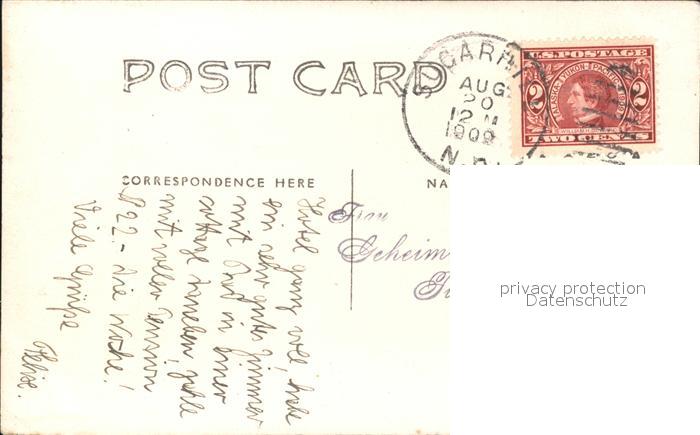 POST CARD
GARRI
AUG
20
12 M
1909
N.
U.S. POSTAGE
ALASKA-YUKON-PACIFIC 1909
2 2
WILLIAM H.
TWO CENTS
CORRESPONDENCE HERE
NA
Hotel ganz voll, habe
ein sehr gutes Zimmer
mit Bad in einer
cottage daneben, zahle
mit voller Pension
$ 22.- die Woche!
Viele Grüße
Felix.
Frau
Geheim
privacy protection
Datenschutz